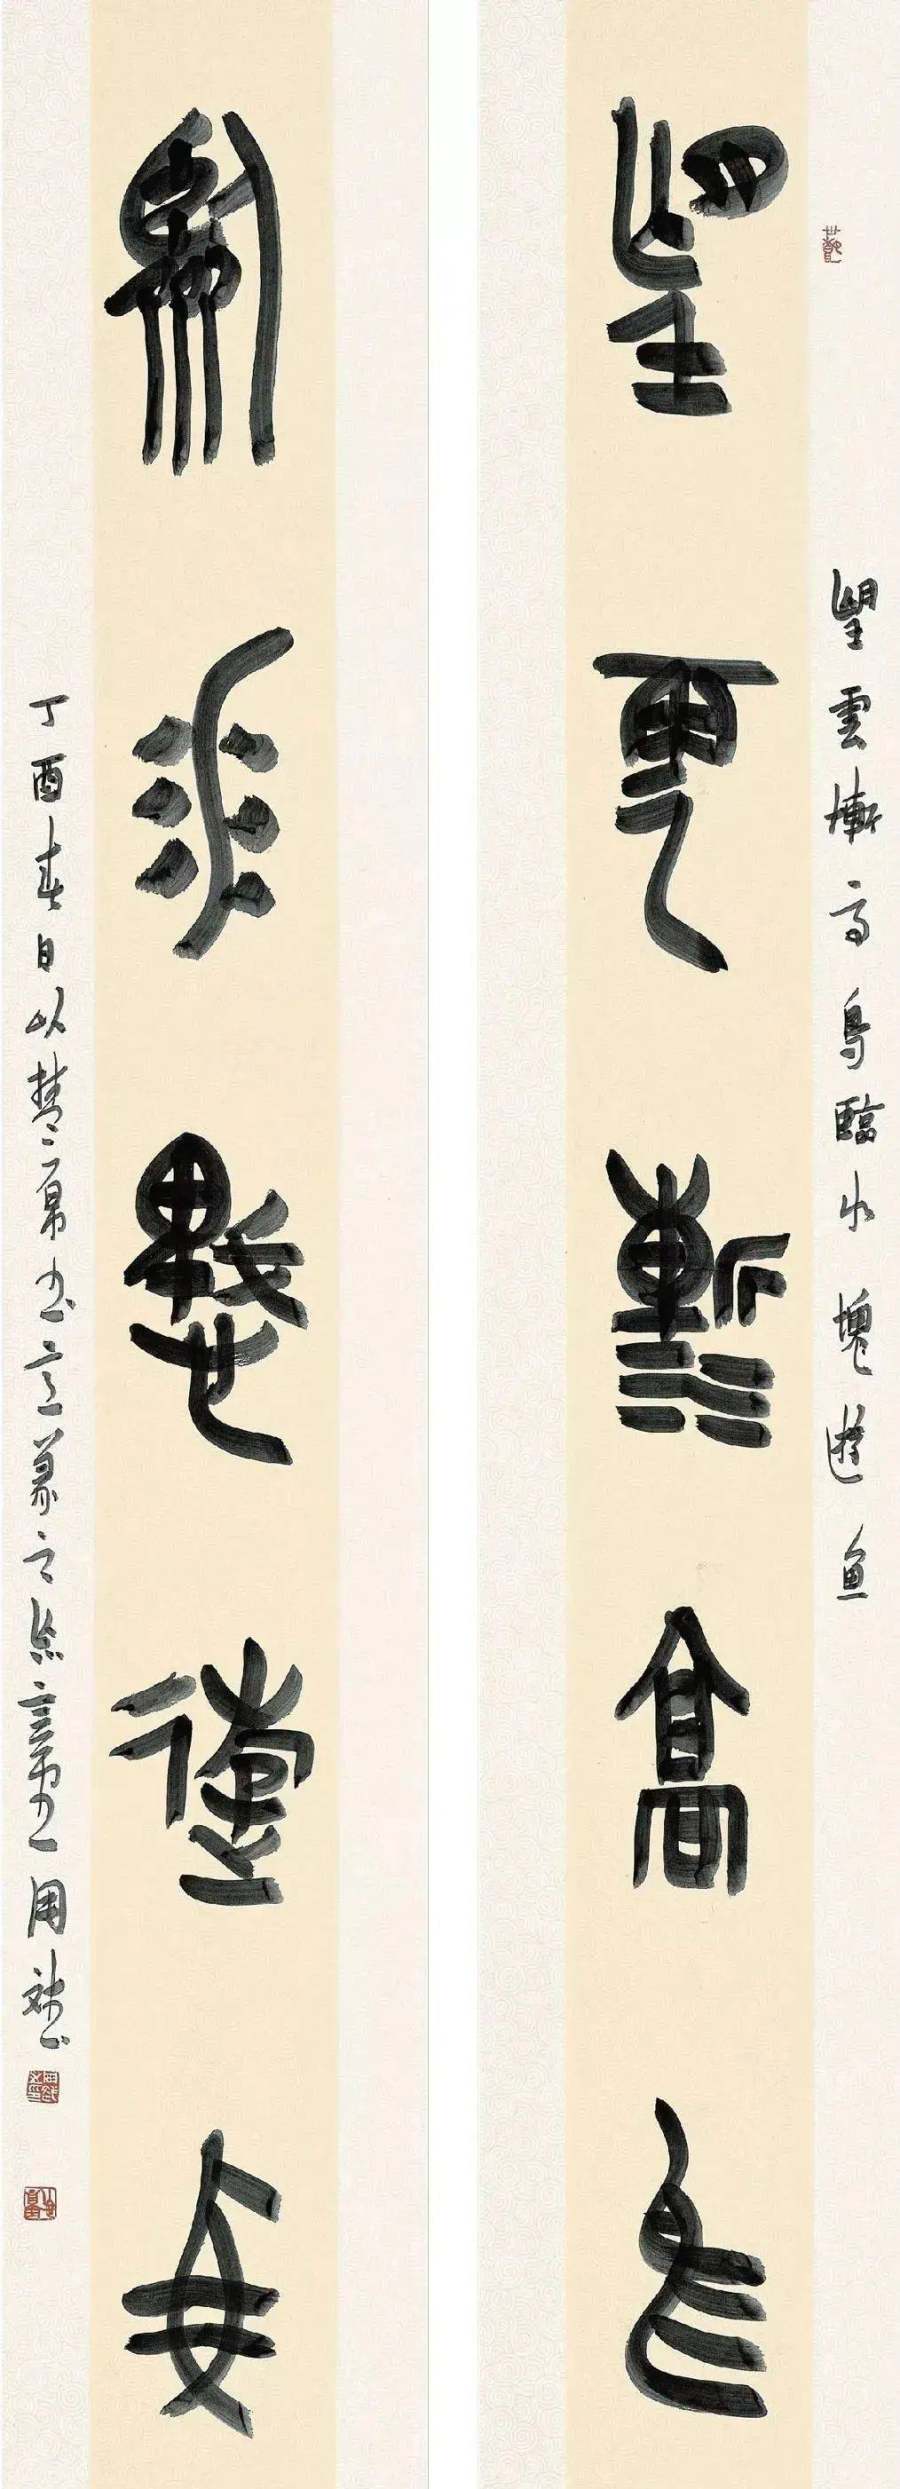 望雲慚高鳥臨水愧遊魚
望雲慚高鳥
臨水愧遊魚
丁酉春日以楚帛書意篆之 周斌